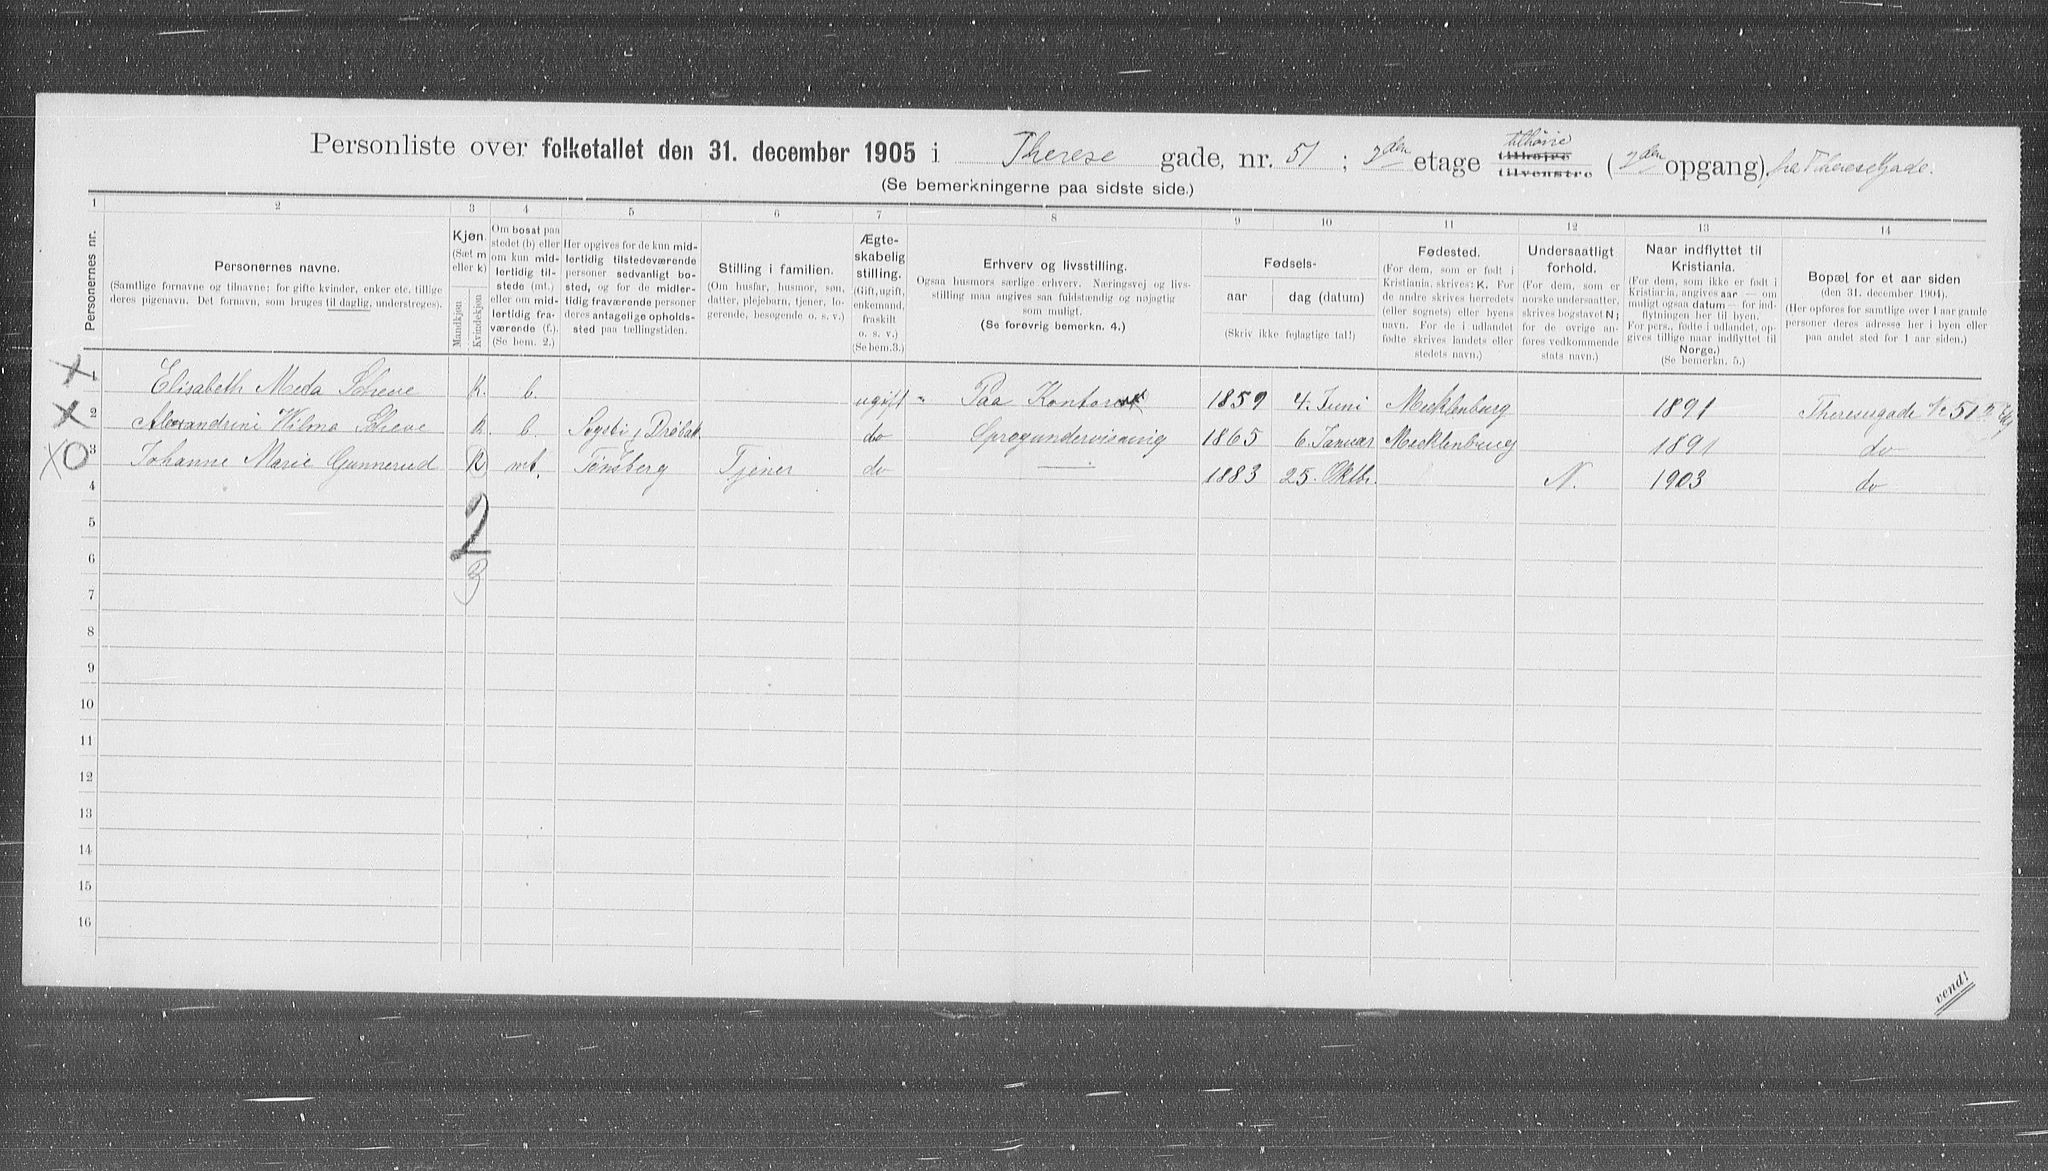 Personliste over folketallet den 31. december 1905 i Therese gade, nr. 51 ; 2den etage tilhøire tilhøire tilvenstre (2den opgang), fra Theresegade.
(Se bemerkningerne paa sidste side.)
1 2 3 4 5 6 7 8 9 10 11 12 13 14
Personernes nr.
Personernes navne.
(Samtlige fornavne og tilnavne; for gifte kvinder, enker etc. tillige
deres pigenavn. Det fornavn, som bruges til daglig, understreges).
Kjøn.
(Sæt m
eller k)
Mandkjøn
Kvindekjøn
Om bosat paa
stedet (b) eller
om kun mid-
lertidig til-
stede (mt.)
eller om mid-
lertidig fra-
værende (f.).
(Se bem. 2.)
Her opgives for de kun mid-
lertidig tilstedeværende
personer sedvanligt bo-
sted, og for de midler-
tidig fraværende personer
deres antagelige opholds-
sted paa tællingstiden.
Stilling i familien.
(Om husfar, husmor, søn,
datter, plejebarn, tjener, lo-
gerende, besøgende o. s. v.)
Ægte-
skabelig
stilling.
(Gift, ugift,
enkemand,
fraskilt
o. s. v.)
(Se bem.3.)
Erhverv og livsstilling.
Ogsaa husmors særlige erhverv. Næringsvej og livs-
stilling maa angives saa fuldstændig og nøjagtig
som muligt.
(Se forøvrig bemerkn. 4.)
Fødsels-
aar
dag (datum)
(Skriv ikke fejlagtige tal!)
Fødested.
(For dem, som er født i
Kristiania, skrives: K. For
de andre skrives herredets
(eller sognets) eller byens
navn. For de i udlandet
fødte skrives landets eller
stedets navn.)
Undersaatligt
forhold.
(For dem, som er
norske undersaatter,
skrives bogstavet N;
for de øvrige an-
føres vedkommende
stats navn.)
Naar indflyttet til
Kristiania.
(For dem, som ikke er født i
Kristiania, angives aar — om
muligt ogsaa datum — for ind-
flytningen her til byen.
For pers., fødte i udlandet, op-
gives tillige naar indflyttet til
Norge.)
(Se bemerkn. 5.)
Bopæl for et aar siden
(den 31. december 1904).
(Her opføres for samtlige over 1 aar gamle
personer deres adresse her i byen eller
paa andet sted for 1 aar siden.)
1 Elisabeth Meda Scheve K. b. ugift " Paa Kontor 1859 4. Juni Mecklenburg 1891 Theresegade № 51
2 Alexandrine Wilma Scheve K. b. Drøbak do Sprogundervisning 1865 6 Januar Mecklenburg 1891 do
3 Johanne Marie Gunnerud K mt. Tønsberg Tjener do — 1883 25. Oktbr. N. 1903 do
4
5
2
6
3
7
8
9
10
11
12
13
14
15
16
vend!